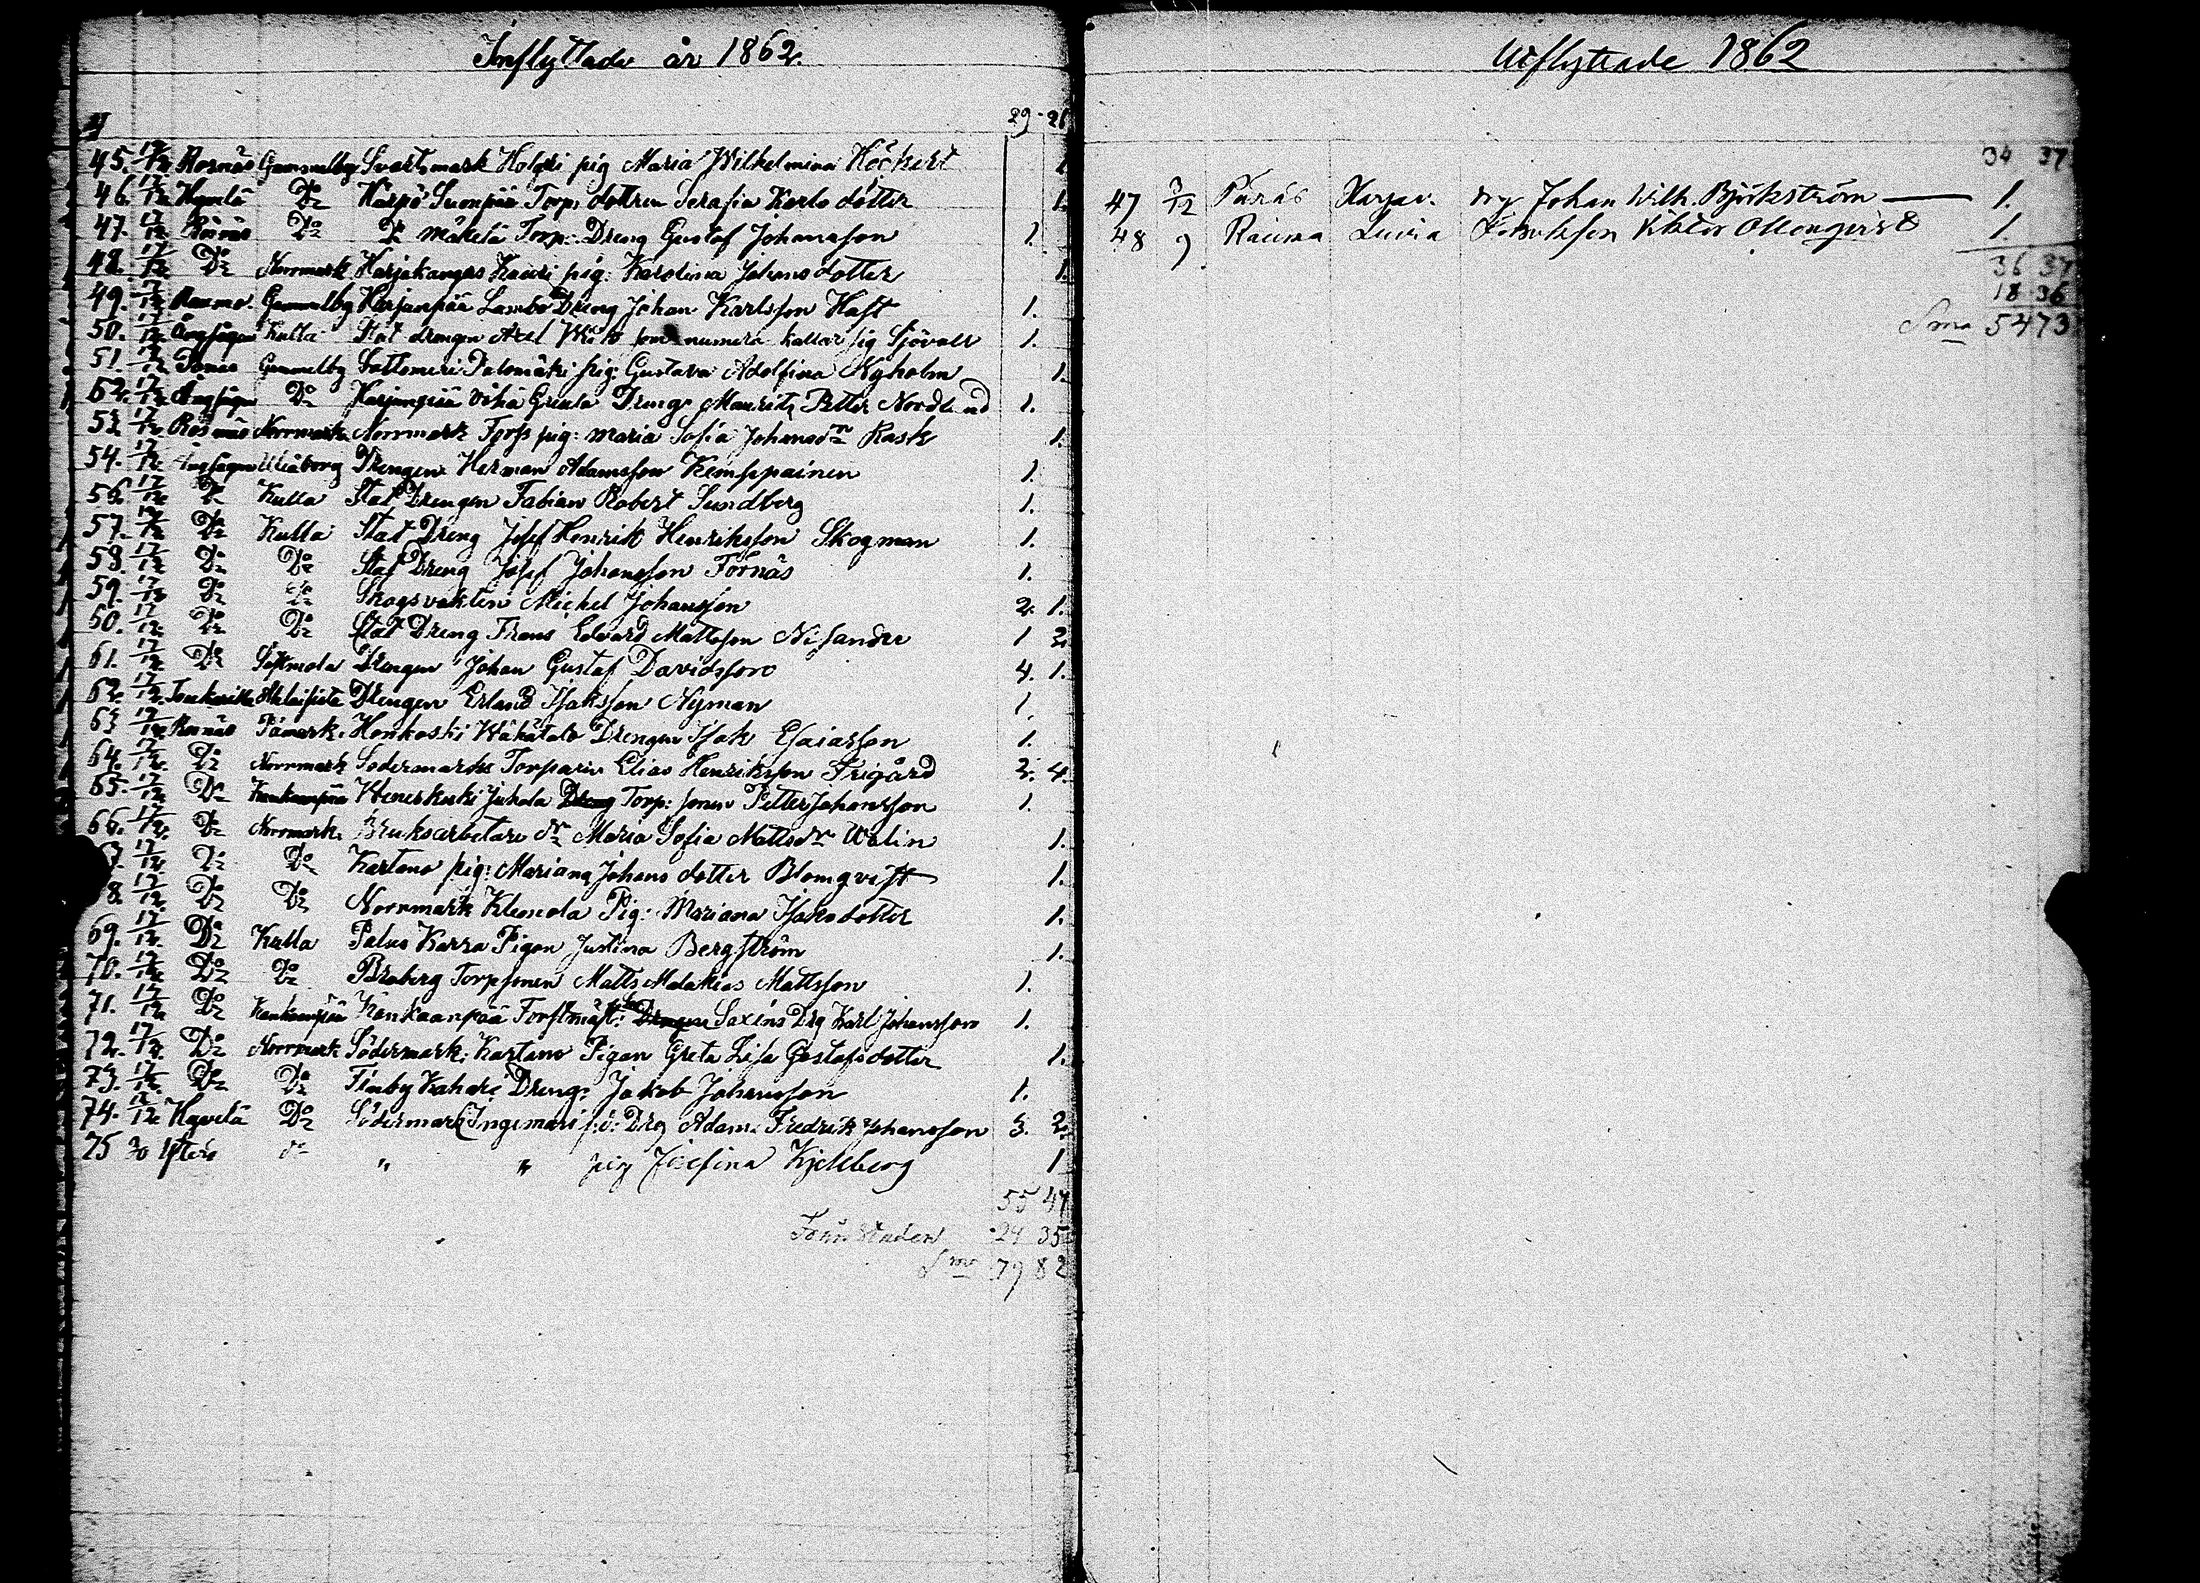 Inflyttade år 1862.
29 - 21
45. 17/12 Rosnäs Gammelby Svartsmark Holpri pig Maria Wilhelmina Höckert 1
46. 17/12 Hyvelä Do Harpö Suonpää Torp. dottren Serafia Karlsdotter 1.
47. 17/12 Rosnäs Do Do Mäkelä Torp: Dreng Gustaf Johansson 1.
48. 17/12 Do Norrmark Harjakangas Kauri pig: Karolina Johansdotter 1.
49. 17/12 Raumo. Gammelby Harjunpää Lambo Dreng Johan Karlsson Haft 1.
50. 17/12 Kulla Stat drengen Axel som numera kallar sig Sjövall 1.
51. 17/12 Gammelby Sattomeri Palomäki pig: Gustava Adolfina Nyholm 1.
52. 17/12 Do Harjunpää Vihä Dreng Mauritz Petter Nordlund 1.
53. 17/12 Rosnäs Norrmark Norrmark Torps pig: Maria Sofia Johansdr Rask 1.
54. 17/12 Uleåborg Drengen Herman Adamsson Kemppainen 1.
56. 17/12 Do Kulla Stat Drengen Fabian Robert Sundberg 1.
57. 17/12 Do Kulla Stat Dreng Josef Henrik Henriksson Skogman 1.
58. 17/12 Do Do Stat Dreng Josef Johansson Fornäs 1.
59. 17/12 Do Do Skogsvakten Michel Johansson 2. 1.
50. 17/12 Do Do Stat Dreng Frans Edvard Mattsson Nisander 1 2
61. 17/12 Do Drengen Johan Gustaf Davidsson 4. 1.
62. 17/12 Drengen Erland Isaksson Nyman 1.
63 17/12 Rosnäs Påmark. Honkoski Drengen Isak Esaiasson 1.
64. 17/12 Do Norrmark Södermarks Torparen Elias Henriksson Frigård 2. 4.
65. 17/12 Do Kankaanpää Juhola Torp: sonen Petter Johansson 1.
66. 17/12 Do Norrmark. Bruksarbetare dr Maria Sofia Mattsdr Walin 1.
67. 17/12 Do Do Kartano pig: Mariana Johansdotter Blomqvist 1.
68. 17/12 Do Do Norrmark Klemola Pig: Mariana Isaksdotter 1.
69. 17/12 Do Kulla Palus Karra Pigan Justina Bergström 1.
70. 17/12 Do Do Broberg Torpsonen Matts Malakias Mattsson 1.
71. 17/12 Do Kankaanpää Kankaanpää Forstmäst: Saxéns Drg Karl Johansson 1.
72. 17/12 Do Norrmark Södermark: Kartano Pigan Greta Lisa Gustafsdotter 1.
73. 17/12 Do Do Finby Kahari Dreng: Jakob Johansson 1.
74. 17/12 Hyvelä Do Södermark Ingemari Drg Adam Fredrik Johansson 3. 2.
75 30 Ytterö do " " pig Josefina Kjellberg 1
55 47
Från Staden 24 35
Sma 79 82
Utflyttade 1862
34 37
47 3/12 Påräs Harjav. drg Johan Wilh. Björkström 1.
48 9 Rauma Luvia Viktor Ollonqvist 1.
36 37
18 36
Sma 54 73